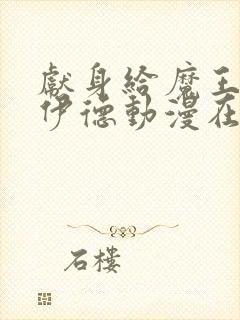 獻身給魔王
伊德動漫在
石樓